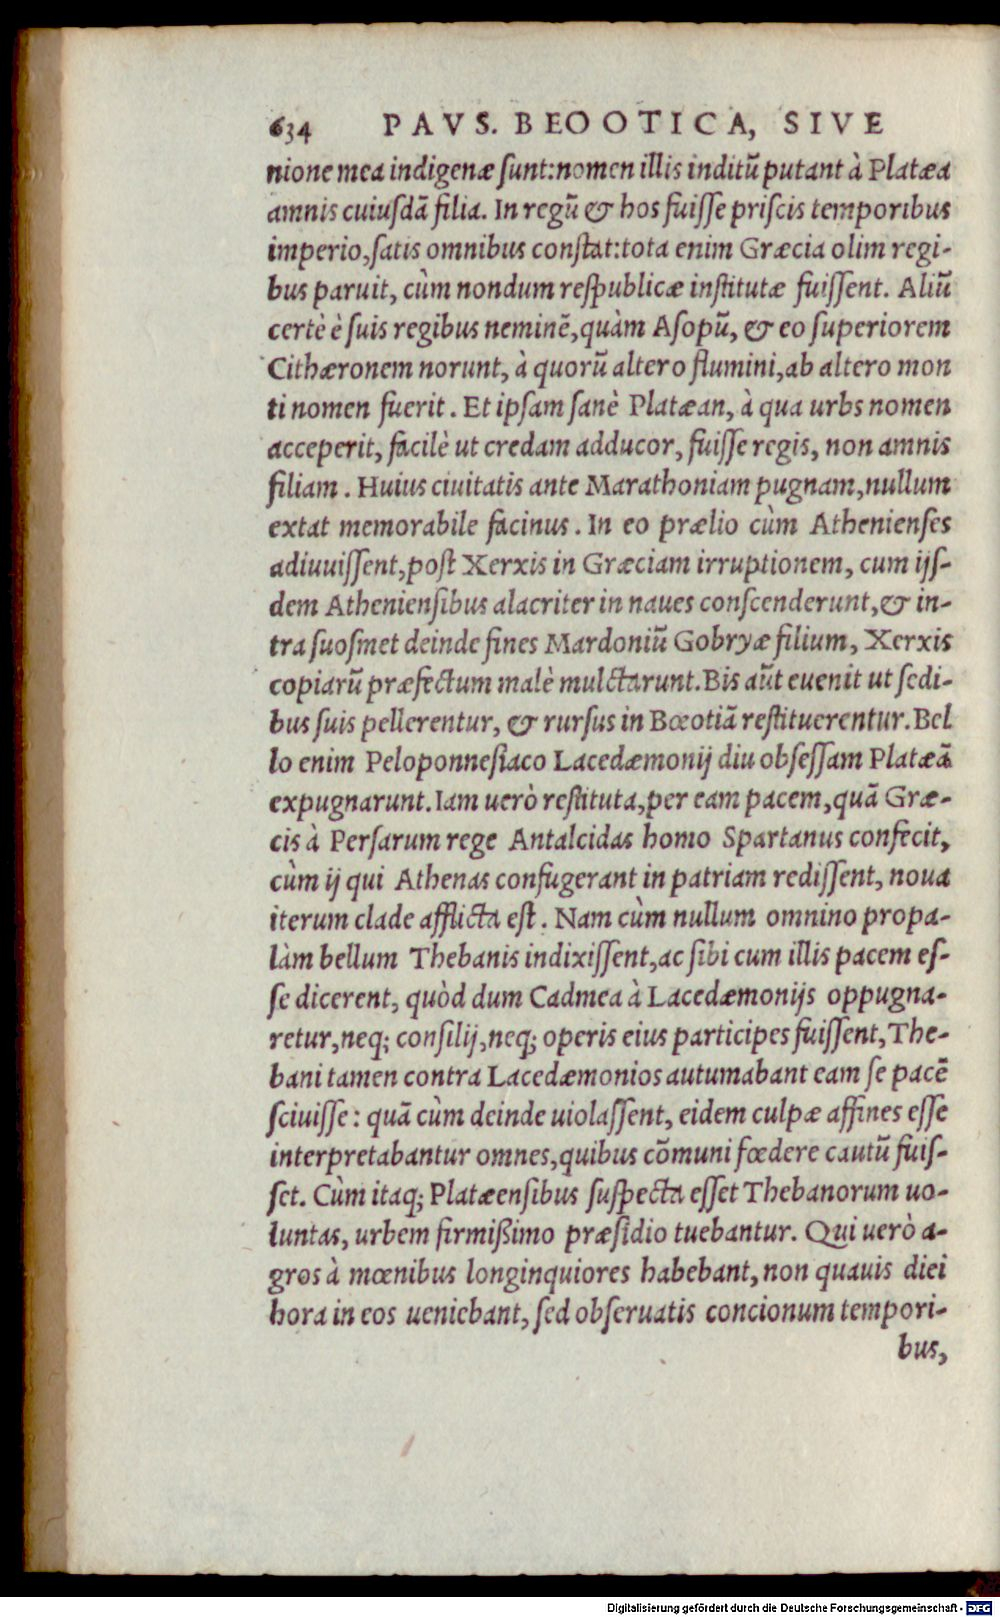 634 PAVS. BEOOTICA, SIVE
nione mea indigenæ ſunt:nomen illis inditū putant à Platæa
amnis cuiuſdā filia. In regū & hos fuiſſe priſcis temporibus
imperio,ſatis omnibus conſtat:tota enim Græcia olim regi-
bus paruit, cùm nondum reſpublicæ inſtitutæ fuiſſent. Aliū
certè è ſuis regibus neminē,quàm Aſopū, & eo ſuperiorem
Cithæronem norunt, à quorū altero flumini,ab altero mon
ti nomen fuerit. Et ipſam ſanè Platæan, à qua urbs nomen
acceperit, facilè ut credam adducor, fuiſſe regis, non amnis
filiam. Huius ciuitatis ante Marathoniam pugnam,nullum
extat memorabile facinus. In eo prælio cùm Athenienſes
adiuuiſſent,poſt Xerxis in Græciam irruptionem, cum ijſ-
dem Athenienſibus alacriter in naues conſcenderunt,& in-
tra ſuoſmet deinde fines Mardoniū Gobryæ filium, Xerxis
copiarū præfectum malè mulctarunt.Bis aūt euenit ut ſedi-
bus ſuis pellerentur, & rurſus in Bœotiā reſtituerentur.Bel
lo enim Peloponneſiaco Lacedæmonij diu obſeſſam Platæā
expugnarunt.Iam uerò reſtituta,per eam pacem,quā Græ-
cis à Perſarum rege Antalcidas homo Spartanus confecit,
cùm ij qui Athenas confugerant in patriam rediſſent, noua
iterum clade afflicta eſt. Nam cùm nullum omnino propa-
làm bellum Thebanis indixiſſent,ac ſibi cum illis pacem eſ-
ſe dicerent, quòd dum Cadmea à Lacedæmonijs oppugna-
retur,neq; conſilij,neq; operis eius participes fuiſſent,The-
bani tamen contra Lacedæmonios autumabant eam ſe pacē
ſciuiſſe: quā cùm deinde uiolaſſent, eidem culpæ affines eſſe
interpretabantur omnes,quibus cōmuni fœdere cautū fuiſ-
ſet. Cùm itaq; Platæenſibus ſuſpecta eſſet Thebanorum uo-
luntas, urbem firmißimo præſidio tuebantur. Qui uerò a-
gros à mœnibus longinquiores habebant,non quauis diei
hora in eos ueniebant, ſed obſeruatis concionum tempori-
bus,
Digitalisierung gefördert durch die Deutsche Forschungsgemeinschaft - DFG